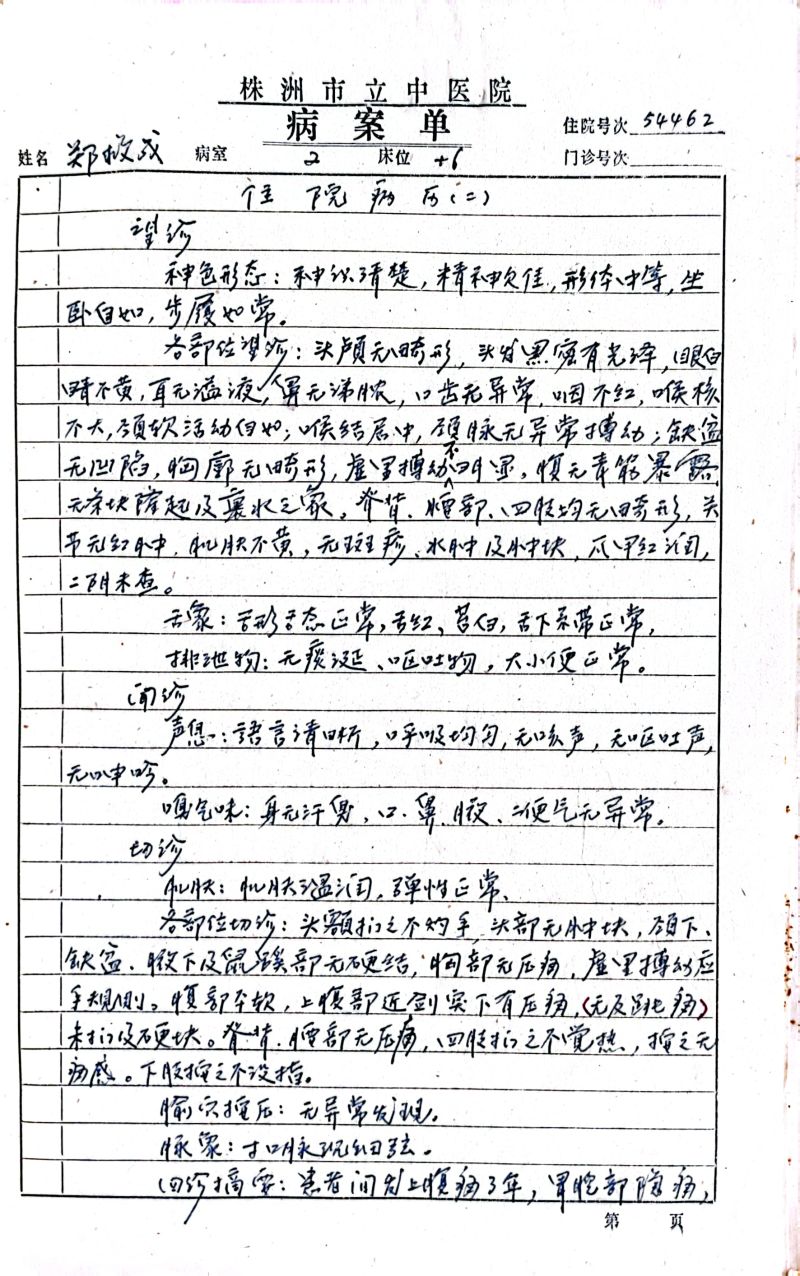 株洲市立中医院
病案单
住院号次 54462
姓名 郑 成 病室 2 床位 +6 门诊号次
住院病历(二)
望诊
神色形态：神识清楚，精神欠佳，形体中等，坐
卧自如，步履如常。
各部位望诊：头颅无畸形，头发黑密有光泽，眼白
睛不黄，耳无溢液，鼻无涕脓，口齿无异常，咽不红，喉核
不大，颈软活动自如；喉结居中，颈脉无异常搏动；缺盆
无凹陷，胸廓无畸形，虚里搏动不明显，腹无青筋暴露
无条块隆起及裹水之象，脊背、腰部、四肢均无畸形，关
节无红肿，肌肤不黄，无斑疹、水肿及肿块，爪甲红润，
二阴未查。
舌象：舌形舌态正常，舌红、苔白，舌下系带正常，
排泄物：无痰涎、呕吐物，大小便正常。
闻诊
声息：語言清晰，呼吸均匀，无咳声，无呕吐声，
无呻吟。
嗅气味：身无汗臭，口、鼻、腋、二便气无异常。
切诊
肌肤：肌肤温润，弹性正常、
各部位切诊：头额扪之不灼手，头部无肿块，颈下、
缺盆、腋下及鼠蹊部无硬结，胸部无压痛，虚里搏动应
手规则。腹部平软，上腹部近剑突下有压痛，(无反跳痛)
未扪及硬块。脊背、腰部无压痛，四肢扪之不觉热，按之无
痛感。下肢按之不没指。
腧穴按压：无异常发现。
脉象：寸口脉沉细弦。
四诊摘要：患者间发上腹痛3年，胃脘部隐痛，
第 页